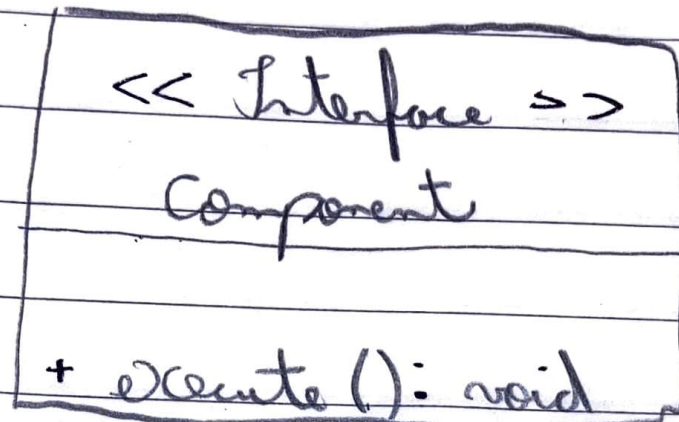 << Interface >>
Component
+ execute (): void